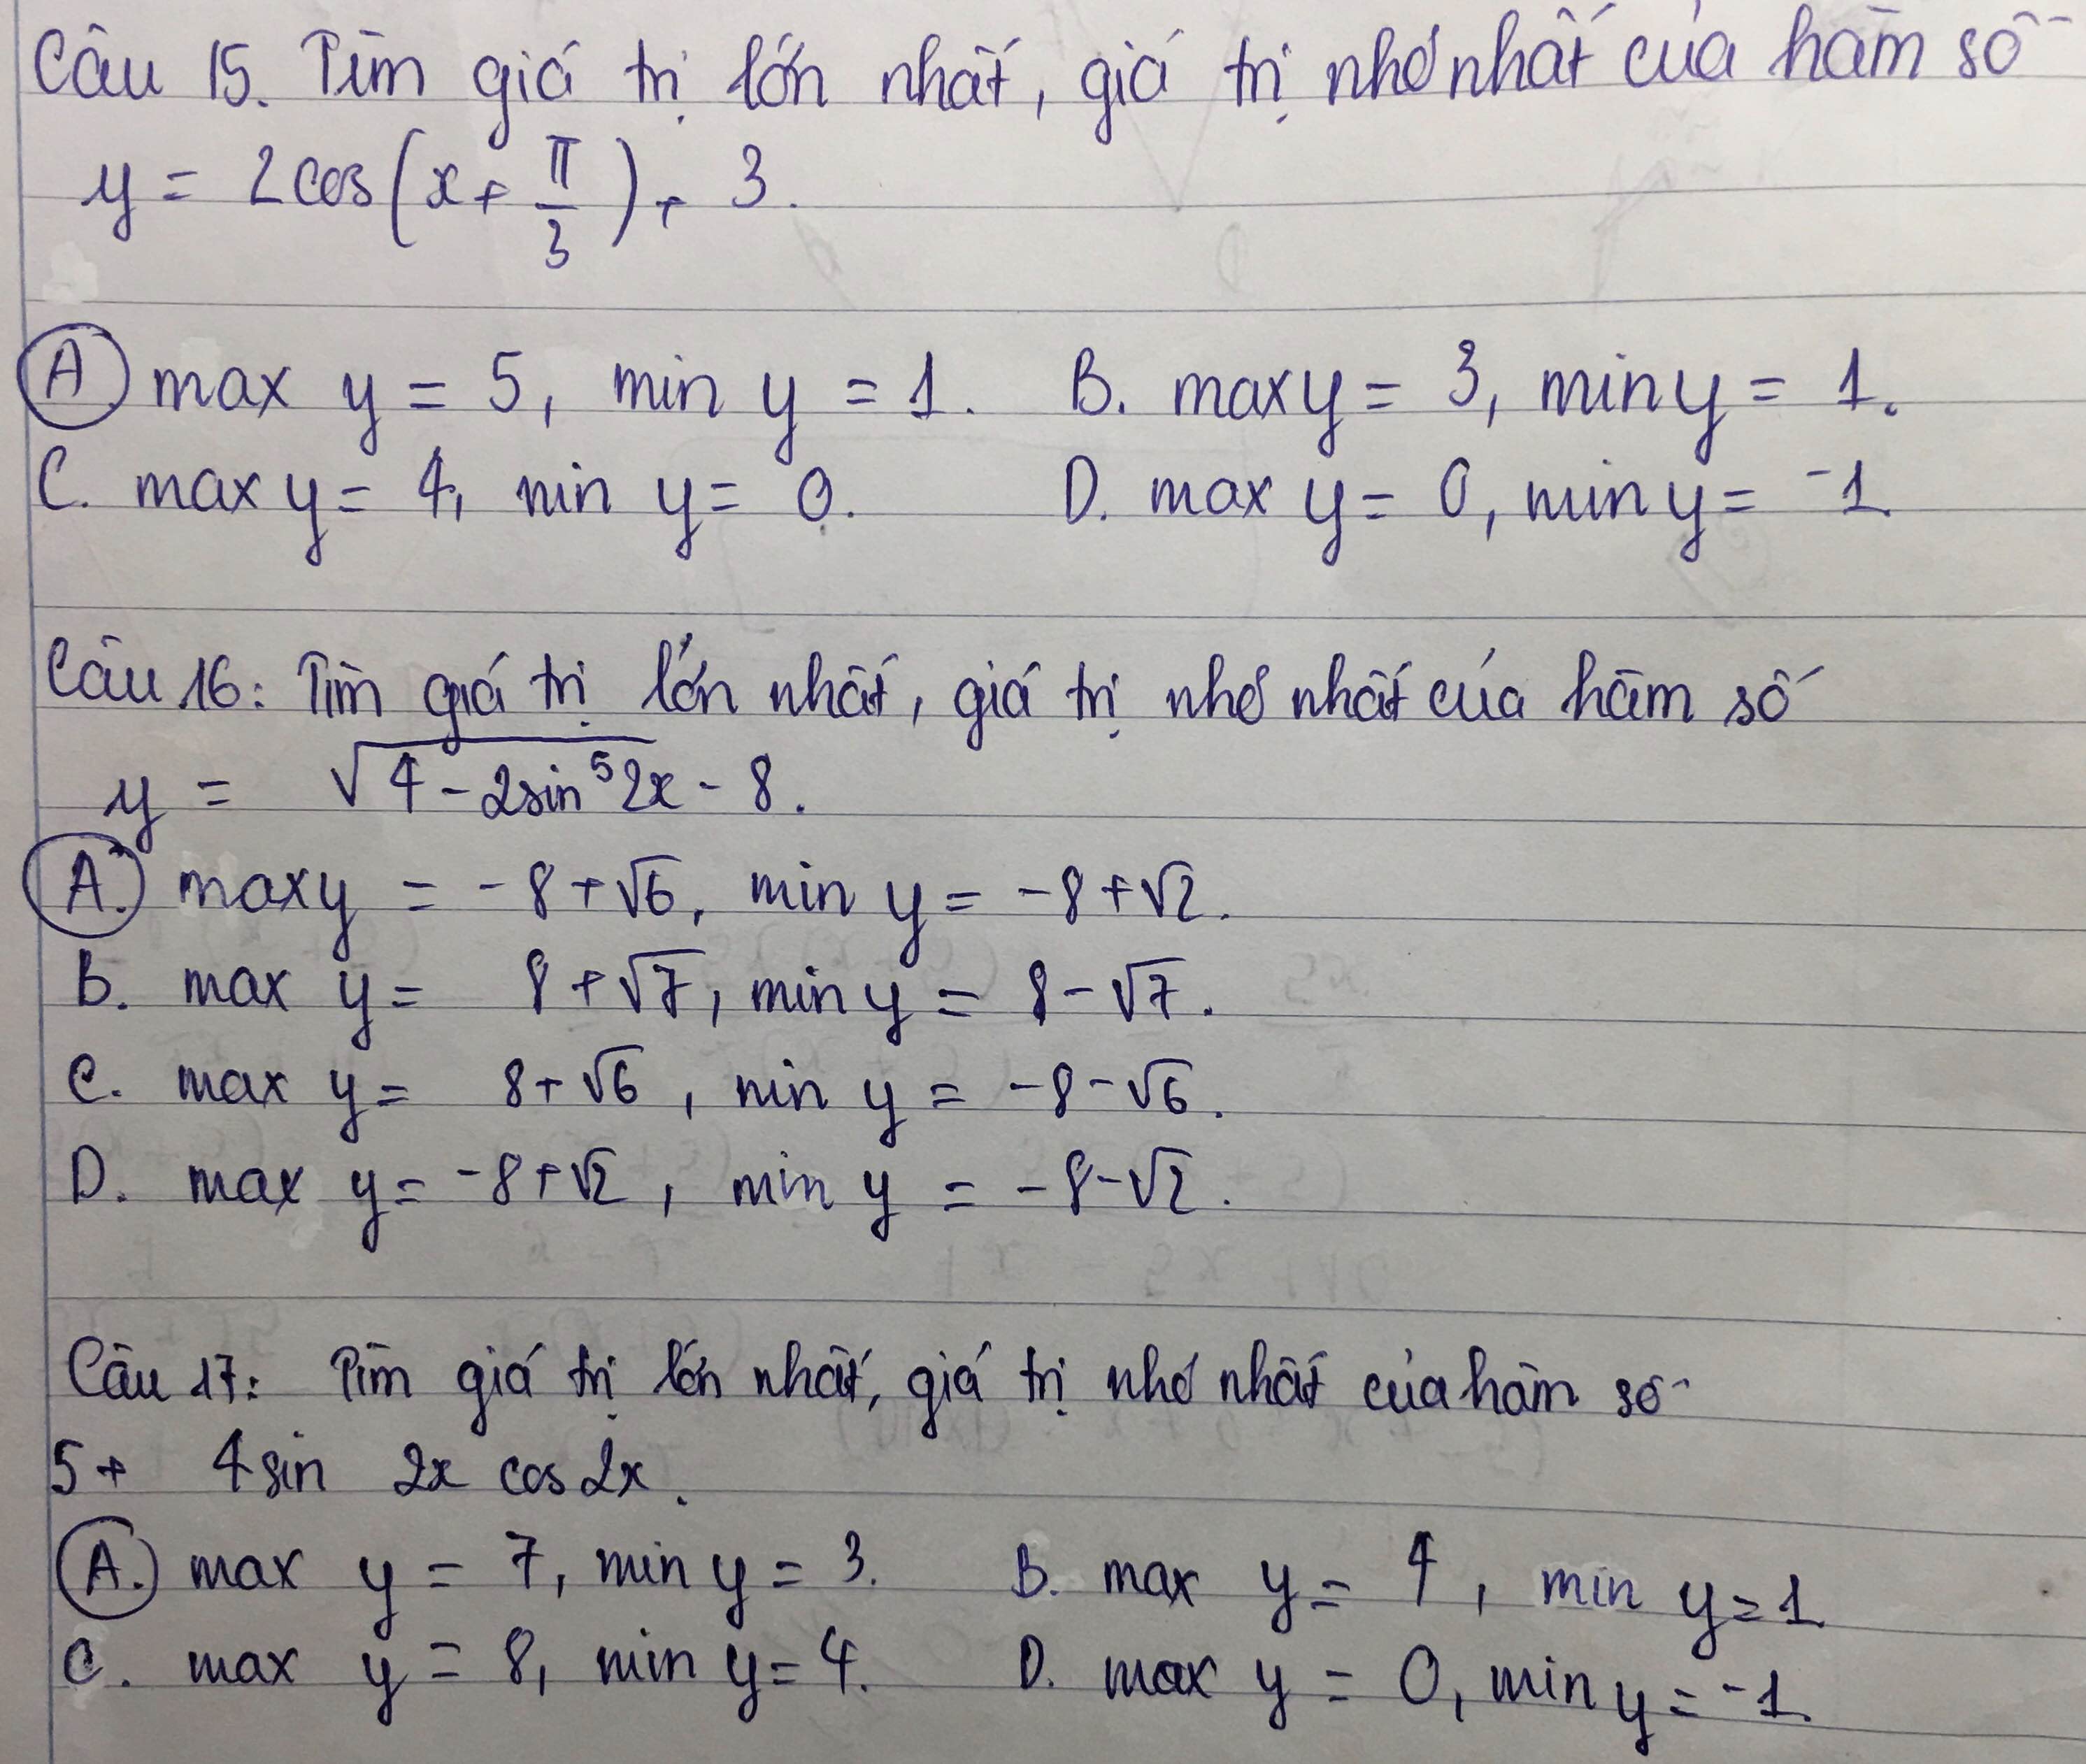 Câu 15. Tìm giá trị lớn nhất, giá trị nhỏ nhất của hàm số
y = 2cos(x + π/3) + 3.
A. max y = 5, min y = 1. B. max y = 3, min y = 1.
C. max y = 4, min y = 0. D. max y = 0, min y = -1.
Câu 16: Tìm giá trị lớn nhất, giá trị nhỏ nhất của hàm số
y = √(4 - 2sin⁵2x) - 8.
A. max y = -8 + √6, min y = -8 + √2.
B. max y = 8 + √7, min y = 8 - √7.
C. max y = 8 + √6, min y = -8 - √6.
D. max y = -8 + √2, min y = -8 - √2.
Câu 17: Tìm giá trị lớn nhất, giá trị nhỏ nhất của hàm số
5 + 4sin 2x cos 2x.
A. max y = 7, min y = 3. B. max y = 4, min y = 1
C. max y = 8, min y = 4. D. max y = 0, min y = -1.